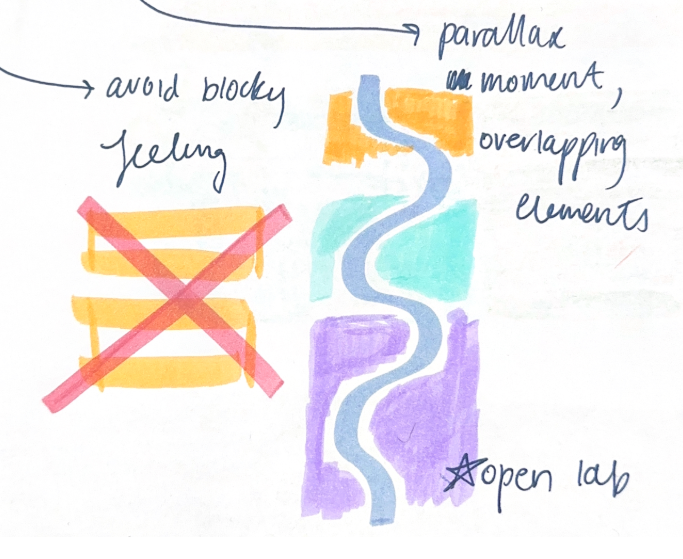 avoid blocky
feeling
parallax
moment,
overlapping
elements
open lab